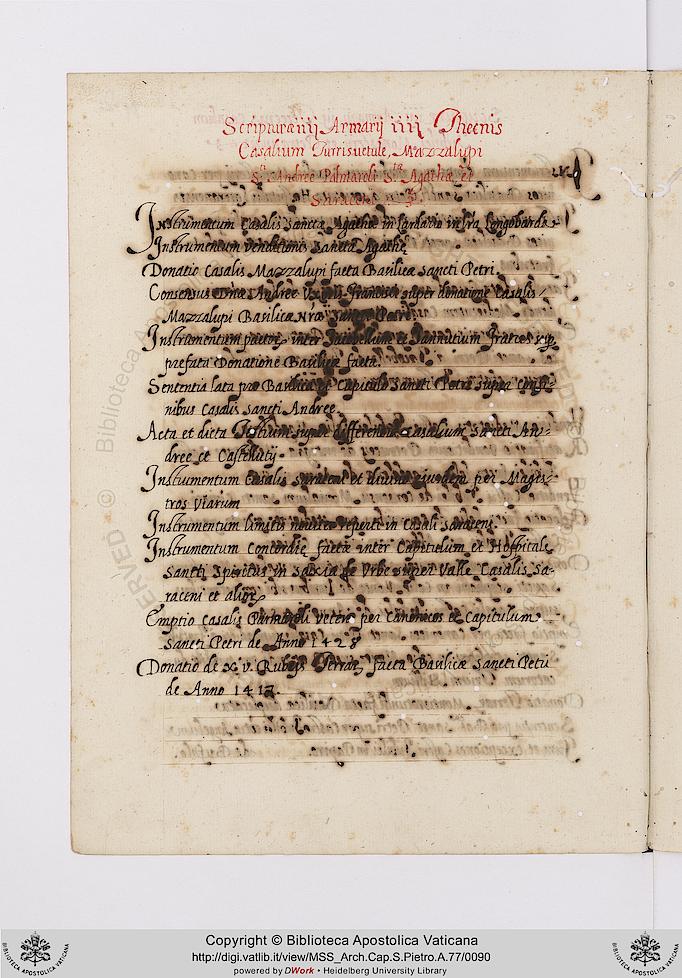 Scripturae iiij Armarij iiij Thecnis
Casalium Turrisuetule, Mazzalupi
Sti Andree Palmaroli Stae Agathae et
Saraceni
Instrumentum Casalis Sanctae Agathae in infra Longobardos
Instrumentum venditionis Sancta Agathe
Donatio Casalis Mazzalupi facta Basilicae Sancti Petri
Consensus Dnae Andree super donatione Casalis
Mazzalupi Basilicae Nrae Sancti Petri
Instrumentum inter et Iannutium fratres sup.
praefata Donatione Basilicae facta
Sententia lata pro Basilica et Capitulo Sancti Petri supra Confi-
nibus Casalis Sancti Andree
Acta et dicta Testium super differentia Casalium Sancti An-
dree et Castelluty
Instrumentum Casalis Saraceni et eiusdem per Magis-
tros Viarum
Instrumentum limitis noviter reperti in Casali Saraceni
Instrumentum Concordie factae inter Capitulum et Hospitale
Sancti Spiritus in Saxia de Urbe super Valle Casalis Sa-
raceni et alior.
Emptio Casalis Parmaroli veteris per Canonicos et Capitulum
Sancti Petri de Anno 1428
Donatio de xv. Rubijs Terrar. facta Basilicae Sancti Petri
de Anno 1417.
Copyright © Biblioteca Apostolica Vaticana
http://digi.vatlib.it/view/MSS_Arch.Cap.S.Pietro.A.77/0090
powered by DWork • Heidelberg University Library